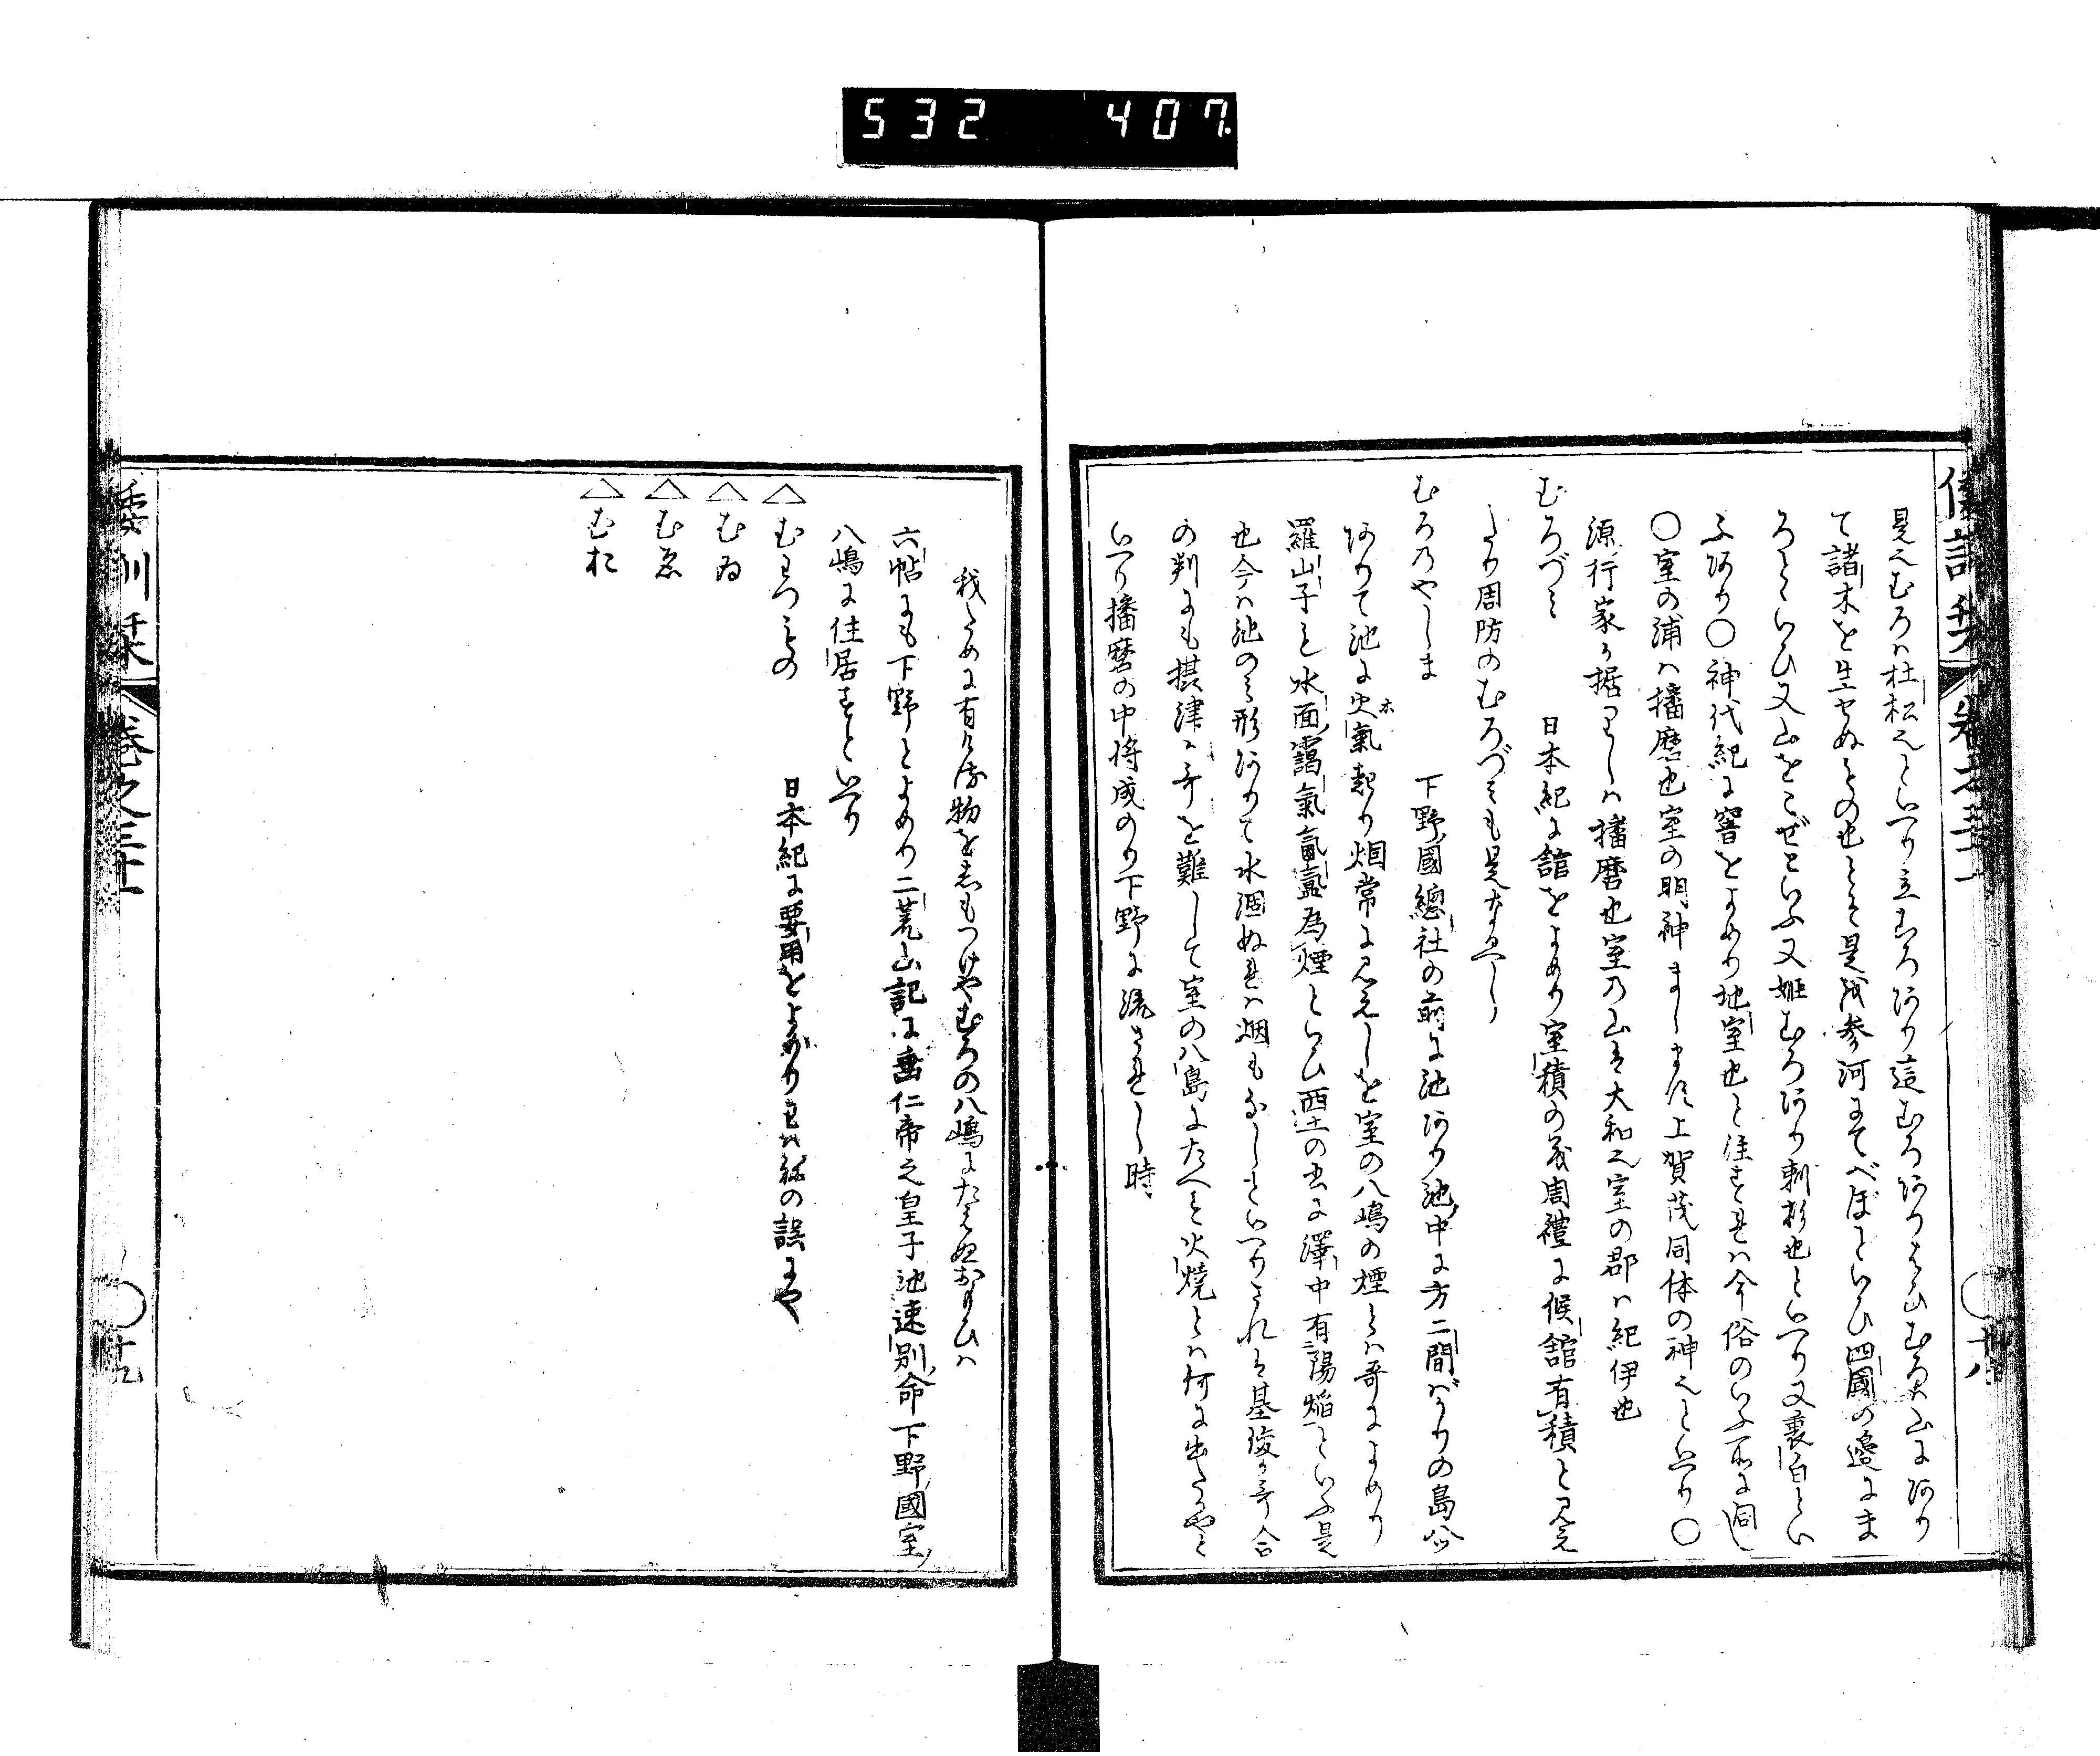 532 407
是也むろハ杜松也といへり立むろあり這むろありはひむろハ山にあり
て諸木を生せぬもの也とそ是を参河にてべぼといひ四國の邊にま
ろといひ又山をこぜといふ又姫むろあり刺杉也といへり又裏白とい
ふあり〇神代紀に窨をよめり地室也と注すれハ今俗のいふ所に同し
〇室の浦ハ播磨也室の明神まします上賀茂同体の神也といへり〇
源行家か据りしハ播磨也室乃山は大和也室の郡ハ紀伊也
むろづミ 日本紀に舘をよめり室積の義周禮に候舘有積と見え
たり周防のむろづミも是なるへし
むろのやしま 下野國總社の前に池あり池中に方二間ばかりの島八ツ
ありて池に火氣起り烟常に見えしを室の八嶋の煙とハ哥によめり
羅山子も水面靄氣氤氳為煙といひ西土の書に澤中有陽焔といふ是
也今ハ池のミ形ありて水涸ぬれハ烟もなしといへりされは基俊か哥合
の判にも摂津か哥を難して室の八島にたへて火焼とハ何に出たるやと
いへり播磨の中将成のり下野に流されし時
我ために有ける物を志もつけやむろの八嶋にたえぬおもひハ
六帖にも下野とよめり二荒山記に垂仁帝之皇子池速別命下野國室
八嶋に住居すといへり
△むわつもの 日本紀に要用をよめりわハ祢の誤にや
△むゐ
△むゑ
△むお
倭訓栞 巻之三十一 〇十九